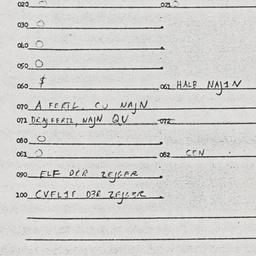 020 O 021 O
030 O
040 O
050 O
060 $ 061 HALB NAJN
070 A FERTL. CU NAJN
071 DRAJFERTL, NAJN QU 072
080 O
081 O 082 CEN
090 ELF DER ZEJGER
100 CVELIF DER ZEJGER